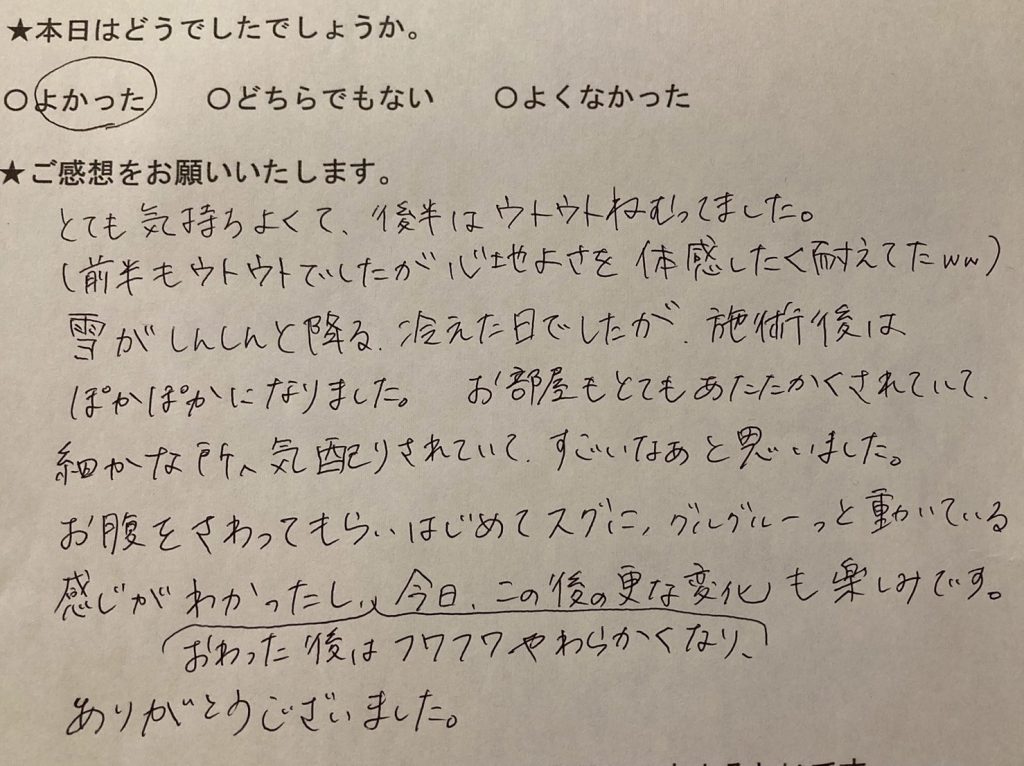 ★本日はどうでしたでしょうか。
○よかった ○どちらでもない ○よくなかった
★ご感想をお願いいたします。
とても気持ちよくて、後半はウトウトねむってました。
(前半もウトウトでしたが心地よさを体感したく耐えてたww)
雪がしんしんと降る、冷えた日でしたが、施術後は
ぽかぽかになりました。 お部屋もとてもあたたかくされていて、
細かな所へ気配りされていて、すごいなぁと思いました。
お腹をさわってもらいはじめてスグに、グルグルーっと動いている
感じがわかったし、今日、この後の更な変化も楽しみです。
おわった後はフワフワやわらかくなり、
ありがとうございました。